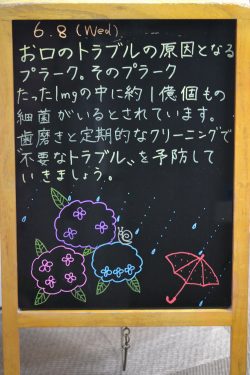 6.8 (Wed)
お口のトラブルの原因となる
プラーク。そのプラーク
たった1mgの中に約1億個もの
細菌がいるとされています。
歯磨きと定期的なクリーニングで
不要なトラブル、を予防して
いきましょう。